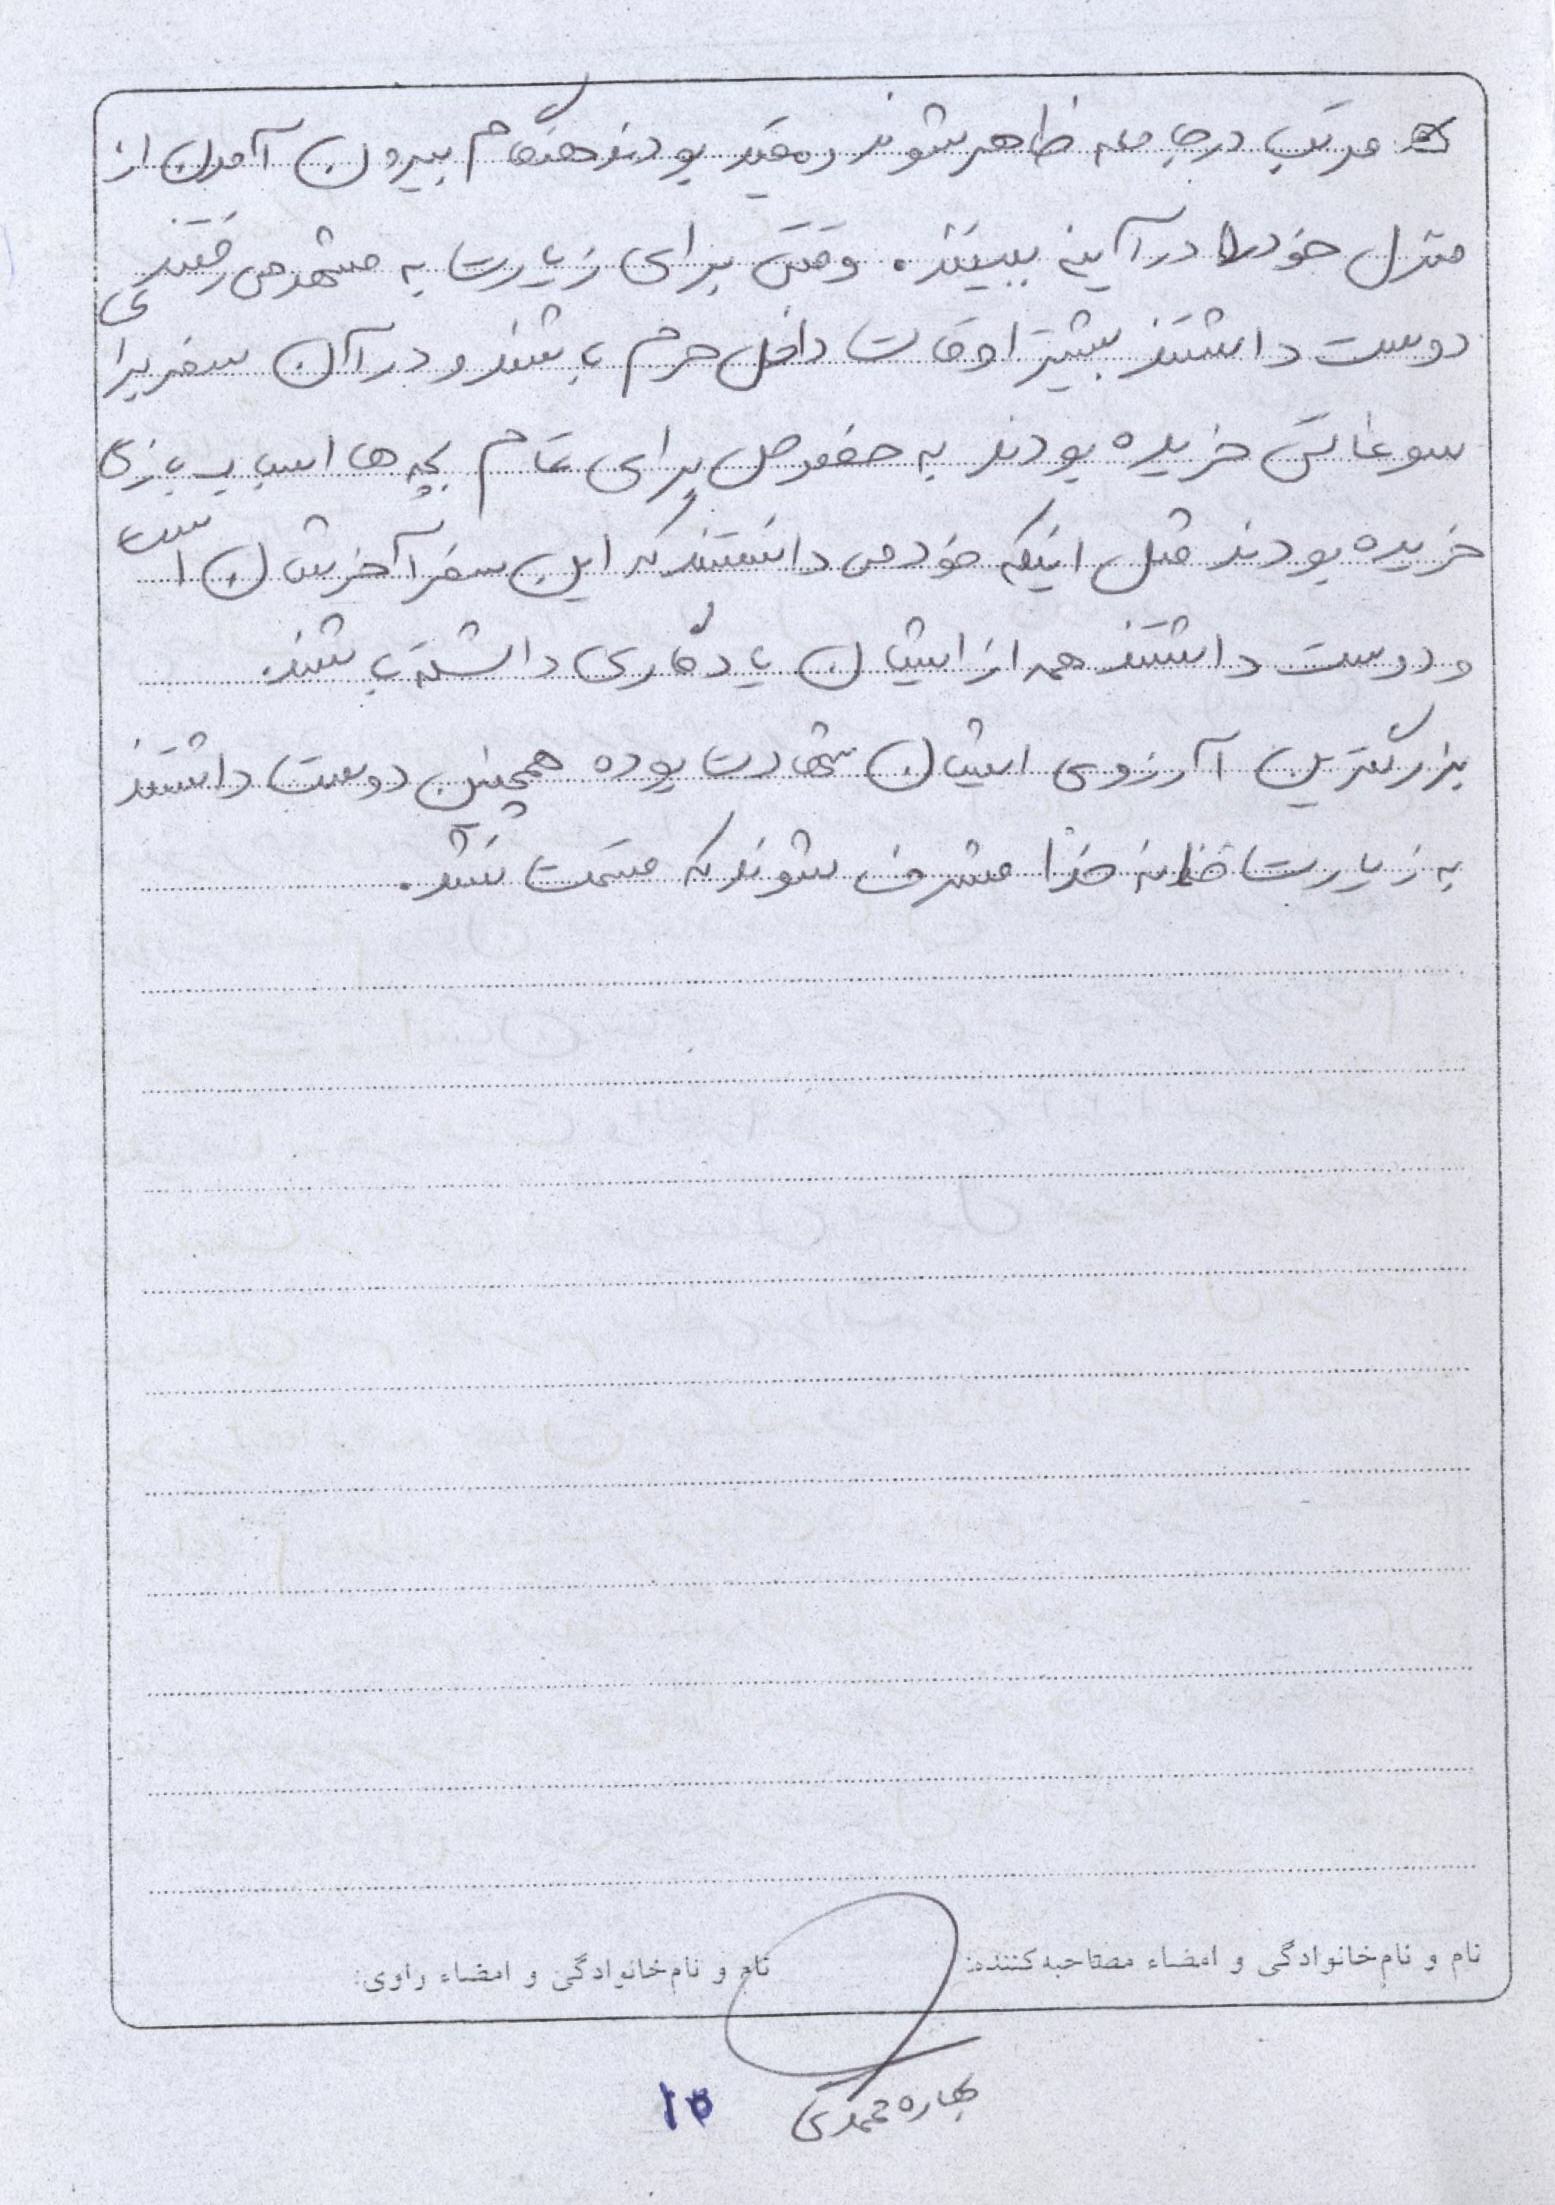 که مرتب در جامعه ظاهر شوند و مقید بودند هنگام بیرون آمدن از
منزل خود را در آینه ببینند. وقتی برای زیارت به مشهد می رفتند
دوست داشتند بیشتر اوقات داخل حرم باشند و در آن سفر برای
سوغاتی خریده بودند به خصوص برای تمام بچه ها اسباب بازی
خریده بودند مثل اینکه خود می دانستند که این سفر آخرشان است
و دوست داشتند همه از ایشان یادگاری داشته باشند.
بزرگترین آرزوی ایشان شهادت بوده همچنین دوست داشتند
به زیارت خانه خدا مشرف شوند که قسمت نشد.
نام و نام‌خانوادگی و امضاء مصاحبه‌کننده: نام و نام‌خانوادگی و امضاء راوی:
بهاره محمدی